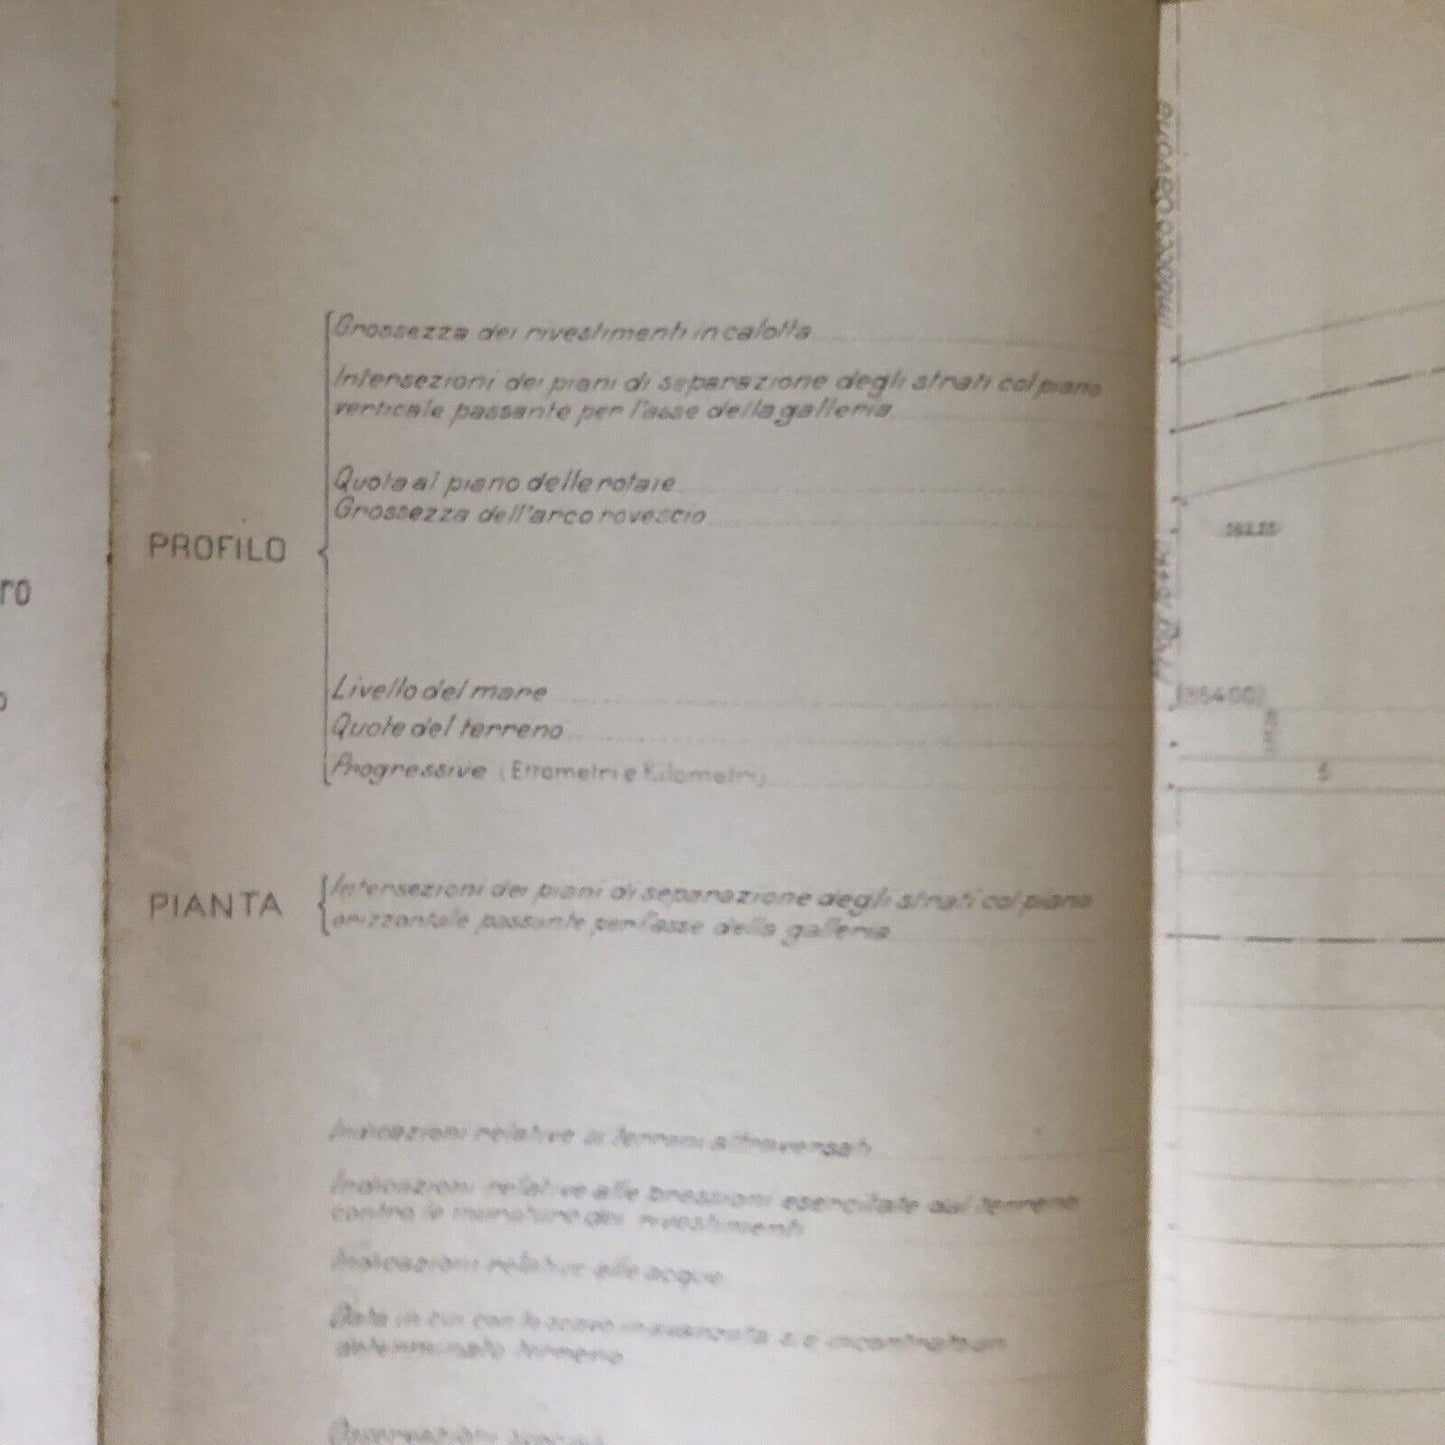 Imbocco Savona
Grossezza dei rivestimenti in calotta
Intersezioni dei piani di separazione degli strati col piano
verticale passante per l'asse della galleria
Quota al piano delle rotaie
Grossezza dell'arco rovescio
PROFILO
ro
Livello del mare
Quote del terreno
Progressive (Ettometri e Kilometri)
5
PIANTA
Intersezioni dei piani di separazione degli strati col piano
orizzontale passante per l'asse della galleria
Indicazioni relative ai terreni attraversati
Indicazioni relative alle pressioni esercitate dal terreno
contro le murature dei rivestimenti
Indicazioni relative alle acque
Data in cui con lo scavo in avanzata si è incontrato un
determinato terreno
Osservazioni speciali